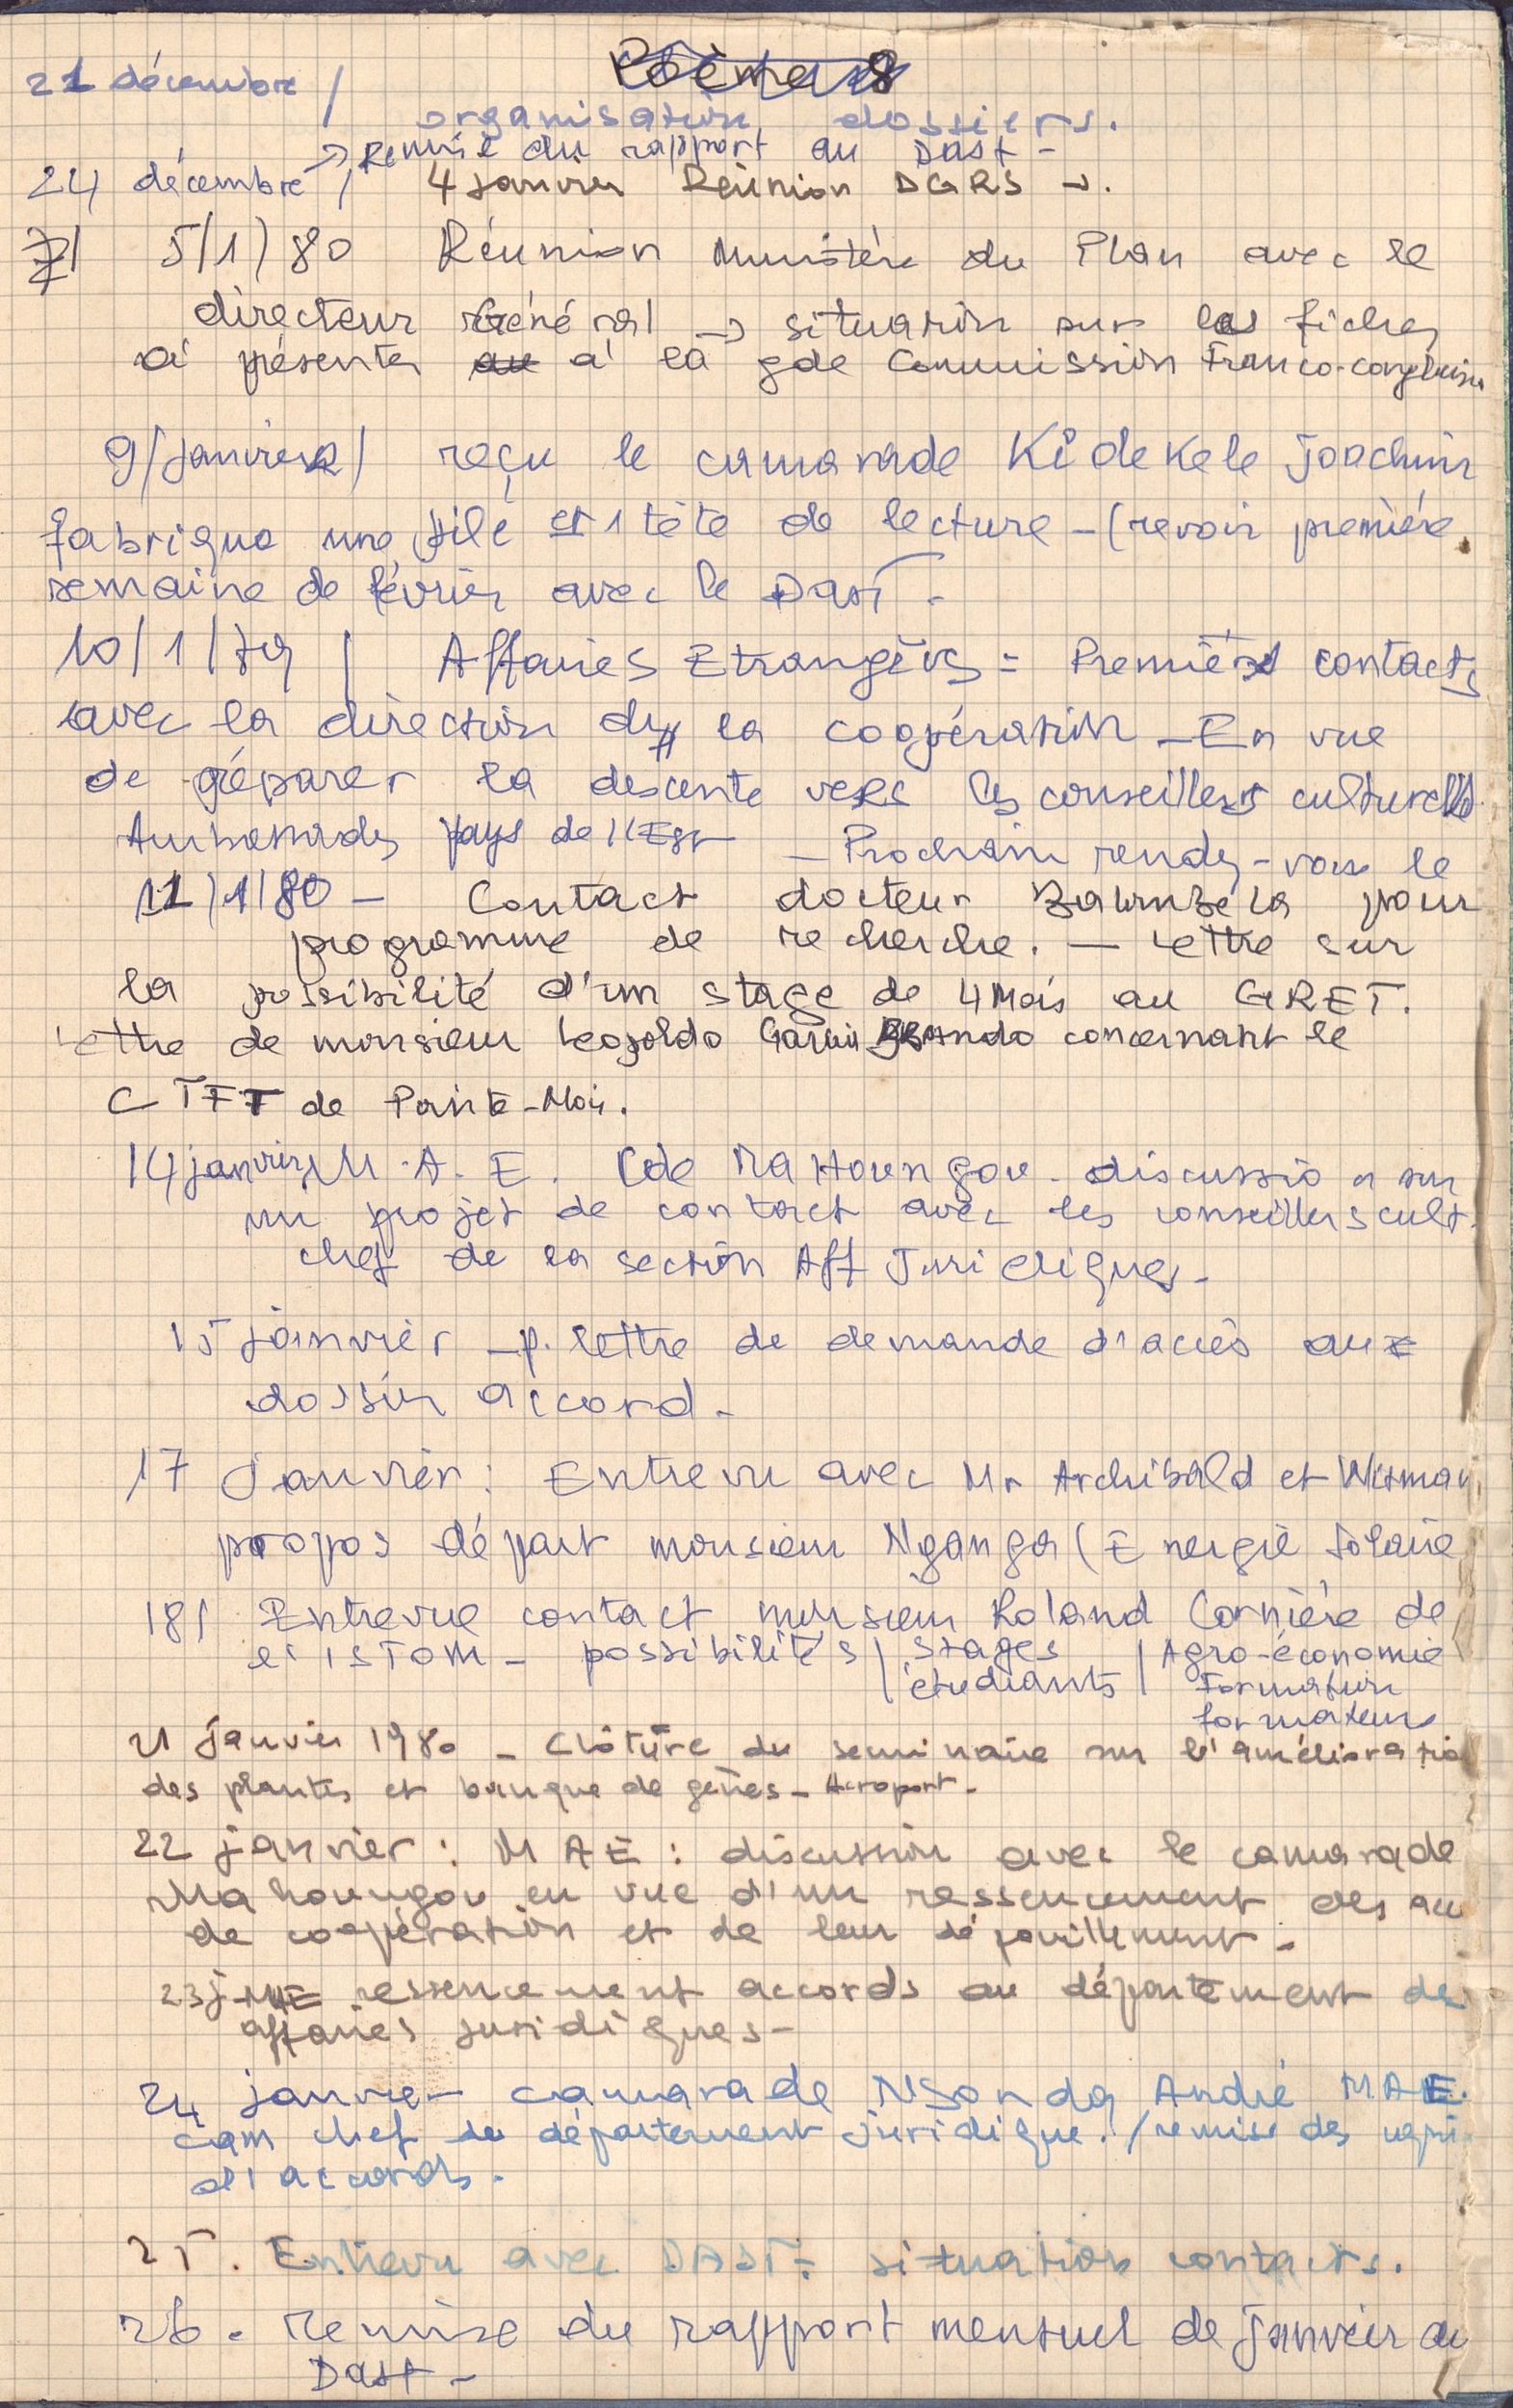 Poèmes
21 décembre /
organisation dossiers.
→ Remise du rapport au Dast -
24 décembre / 4 janvier Réunion DGRS →.
5/1/80 Réunion Ministère du Plan avec le
directeur Général → situation sur les fiches
à présenter au à la gde Commission Franco-congolaise
9/janvier/ reçu le camarade Kidekele Joachim
fabrique une pile et 1 tête de lecture - (revoir première
semaine de février avec le Dast -
10/1/79 / Affaires Etrangères = Premiers contacts
avec la direction de la coopération - En vue
de préparer la descente vers les conseillers culturels
Ambassades pays de l'Est - Prochain rendez-vous le
11/1/80 - Contact docteur pour
programme de recherche. - Lettre sur
la possibilité d'un stage de 4 Mois au GRET.
Lettre de monsieur Leopoldo concernant le
CTFT de Pointe-Noir.
14 janvier M.A.E. Cde Mahoungou - discussion sur
un projet de contact avec les conseillers cult.
chef de la section Aff Juridiques -
15 janvier - p. lettre de demande d'accès aux
dossier accord -
17 Janvier : Entrevu avec Mr Archibald et
propos départ monsieur Nganga (Energie Solaire
18/ Entrevue contact monsieur Roland Cornière de
l'ISTOM - possibilités / stages / Agro-économie
étudiants / Formation
formateurs
21 Janvier 1980 - Clôture du seminaire sur l'amélioratio
des plantes et banque de gènes - Aeroport -
22 janvier : MAE : discussion avec le camarade
Mahoungou en vue d'un ressencement des ac
de coopération et de leur dépouillement -
23 j - MAE ressencement accords au département des
affaires juridiques -
24 janvier - camarade Nsonda André MAE.
cam chef de département juridique. / remise des
d'accords.
25. Entrevu avec DAST : situation contacts.
26. Remise du rapport mensuel de Janvier au
Dast -